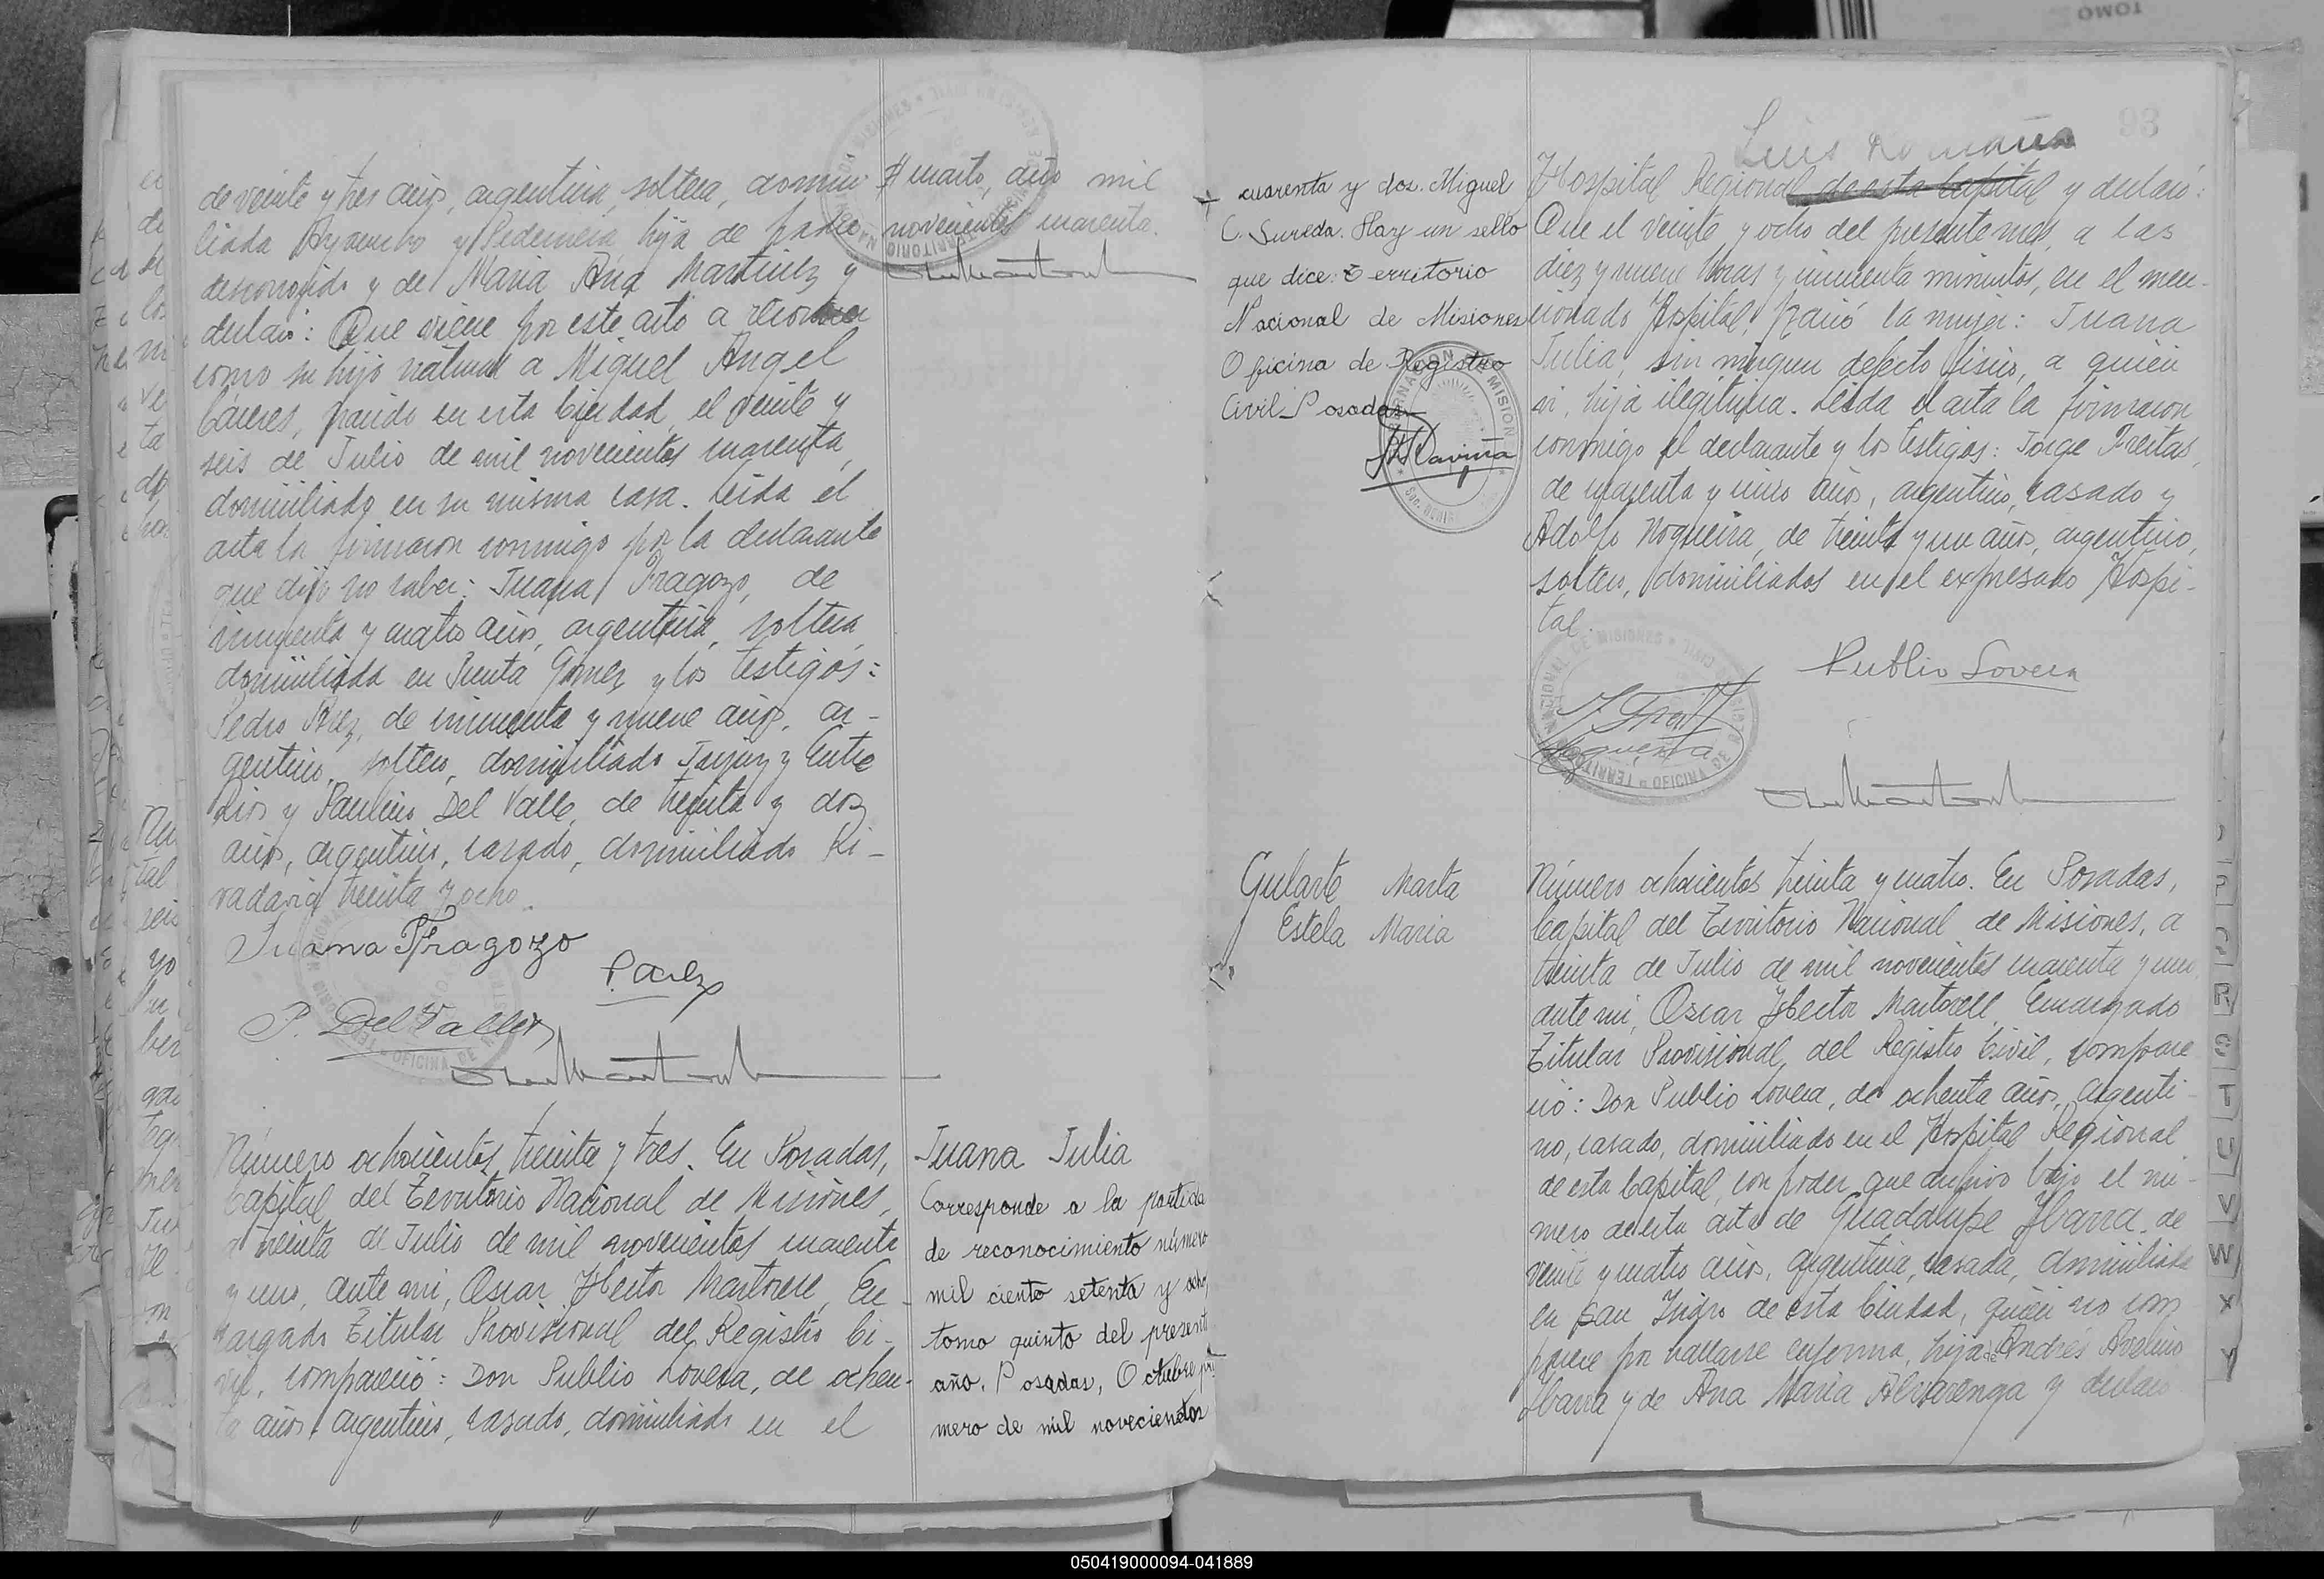 de veinte y tres años, argentina, soltera, domici
liada Ayacucho y Pedernera, hija de padre
desconocido y de Maria Ana Martinez y
declaró: Que viene por este acto a reconocer
como su hijo natural a Miguel Angel
Cáceres, nacido en esta Ciudad, el veinte y
seis de Julio de mil novecientos cuarenta,
domiciliado en su misma casa. Leida el
acta la firmaron conmigo por la declarante
que dijo no saber: Juana Fragozo, de
cincuenta y cuatro años, argentina, soltera,
domiciliada en Punta Gómez y los testigos:
Pedro Paez, de cincuenta y nueve años, ar-
gentino, soltero, domiciliado Jujuy y Entre
Rios y Paulino Del Valle, de treinta y dos
años, argentino, casado, domiciliado Ri-
vadavia treinta y ocho.
Juana Fragozo
P. Paez
P. Del Valle
cuarto, año mil
novecientos cuarenta.
Número ochocientos treinta y tres. En Posadas,
Capital del Territorio Nacional de Misiones,
a treinta de Julio de mil novecientos cuarenta
y uno, ante mi, Oscar Hector Martorell, En-
cargado Titular Provisional del Registro Ci-
vil, compareció: Don Publio Lovera, de ochen-
ta años, argentino, casado, domiciliado en el
Juana Julia
Corresponde a la partida
de reconocimiento número
mil ciento setenta y ocho,
tomo quinto del presente
año. Posadas, Octubre pri
mero de mil novecientos
cuarenta y dos. Miguel
C. Sureda. Hay un sello
que dice: Territorio
Nacional de Misiones
Oficina de Registro
Civil-Posadas
98
Luis
Hospital Regional de esta Capital y declaró:
Que el veinte y ocho del presente mes, a las
diez y nueve horas y cincuenta minutos, en el men-
cionado Hospital, nació la mujer: Juana
Julia, sin ningun defecto fisico, a quien
vi, hija ilegitima. Leida el acta la firmaron
conmigo el declarante y los testigos: Jorge Freitas,
de cuarenta y cinco años, argentino, casado y
Adolfo Nogueira, de treinta y un años, argentino,
soltero, domiciliados en el expresado Hospi-
tal.
Publio Lovera
Gularte Marta
Estela Maria
Número ochocientos treinta y cuatro. En Posadas,
Capital del Territorio Nacional de Misiones, a
treinta de Julio de mil novecientos cuarenta y uno,
ante mi, Oscar Hector Martorell, Encargado
Titular Provisional, del Registro Civil, compare
ció: Don Publio Lovera, de ochenta años, argenti-
no, casado, domiciliado en el Hospital Regional
de esta Capital, con poder que archivo bajo el nú-
mero de esta acta de Guadalupe Ibarra, de
veinte y cuatro años, argentina, casada, domiciliada
en San Isidro de esta Ciudad, quien no com
parece por hallarse enferma, hija de Andrés Avelino
Ibarra y de Ana Maria Alvarenga y declaró
P
Q
R
S
T
U
V
W
X
Y
TOMO
050419000094-041889